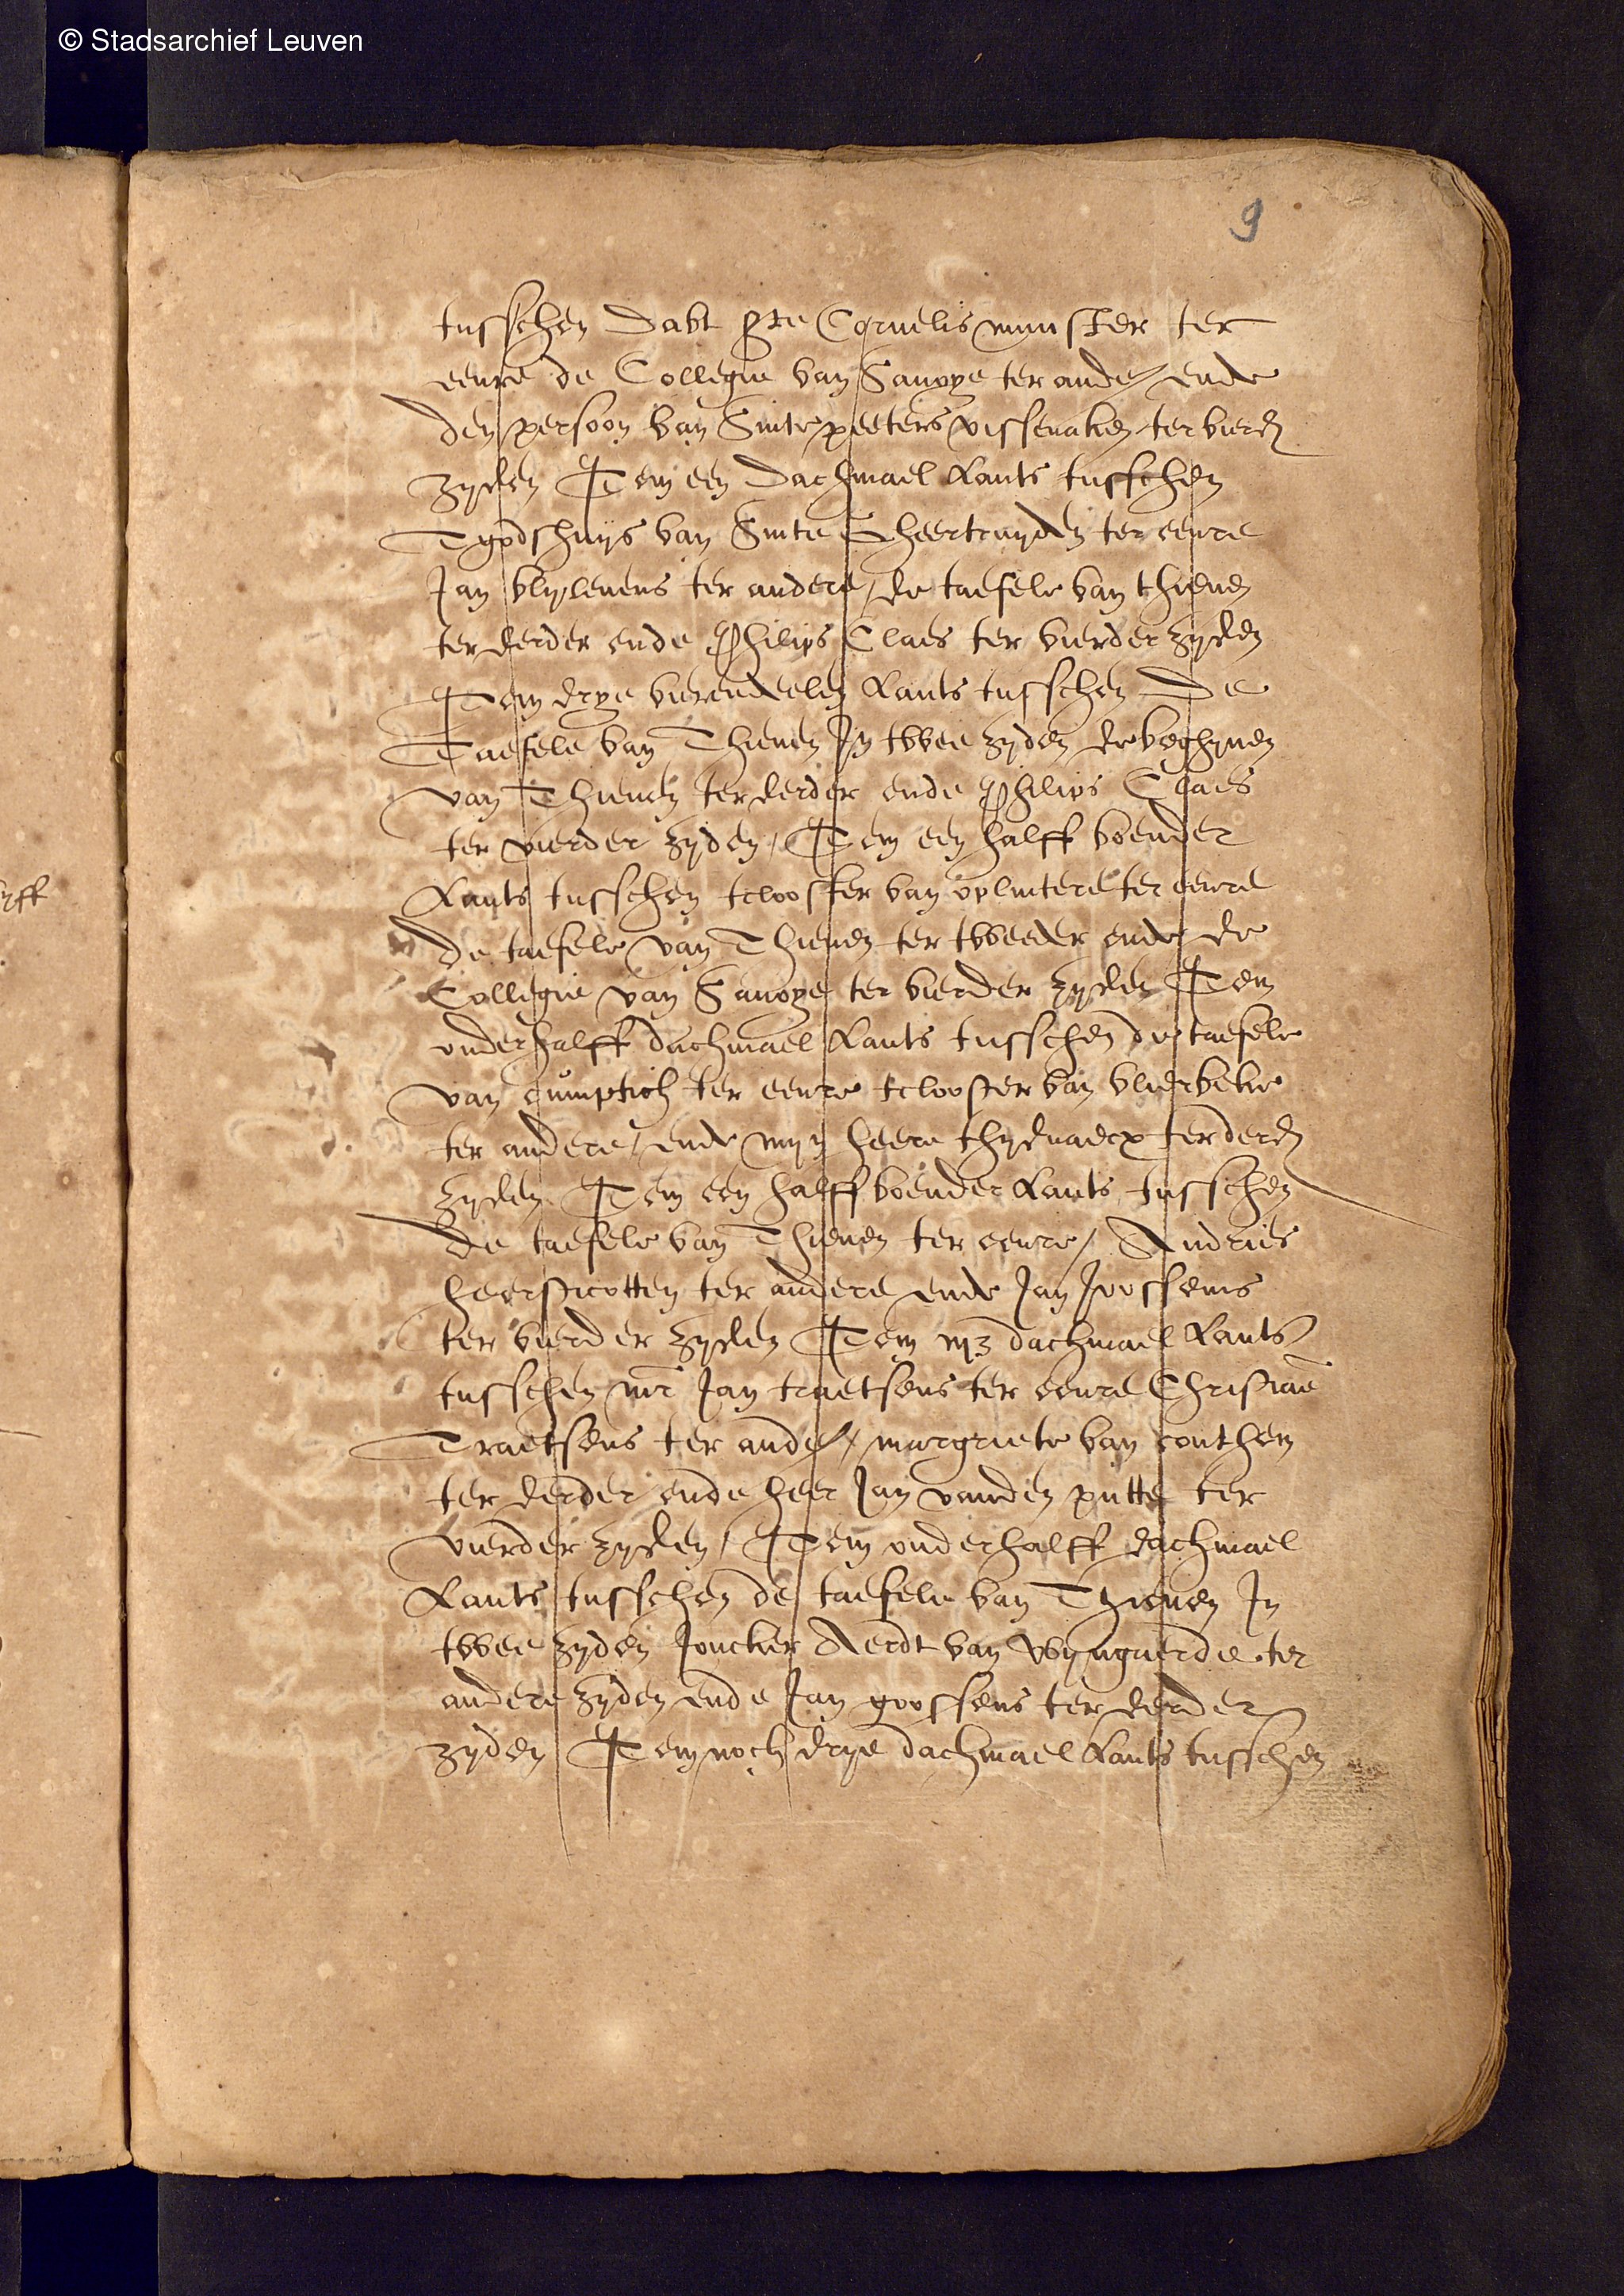 © Stadsarchief Leuven
9
tusschen dabt Ste Cornelis munster ter
eenre de Collegie van Savoye ter ander ende
den persoon van Sinte peeters vissenaken ter vierder
zyden Item een dachmael Lants tusschen
Tgodshuys van Sinte Gheertruyden ter eenre
Jan blylevens ter andere / de taefele van thienen
ter derder ende Philips Claes ter vierder zyden
Item drye vierendeelen Lants tusschen De
Taefele van Thienen In twee zyden de beghynen
van Thienen ter derder ende Philips Claes
ter vierder zyden / Item een halff boender
Lants tusschen tclooster van oplintere ter eenre
De taefele van Thienen ter tweeder ende de
Collegie van Savoye ter vierder zyden Item
onderhalff dachmael Lants tusschen de taefele
van cumptich ter eenre tclooster van vlierbeke
ter andere / ende myn heere ter derder
zyden Item een halff boender Lants tusschen
De taefele van Thienen ter eenre / Andries
ter andere ende Jan Joossens
ter vierder zyden Item dachmael Lants
tusschen mr Jan traetsens ter eenre Christiaen
Traetsens ter ander / margriete van conthem
ter derder ende heer Jan vanden putte ter
vierder zyden / Item onderhalff dachmael
Lants tusschen de taefele van Thienen In
twee zyden Joncker Aerdt van Wyngaerde ter
andere zyden ende Jan goossens ter derder
zyden Item noch drye dachmael Lants tusschen